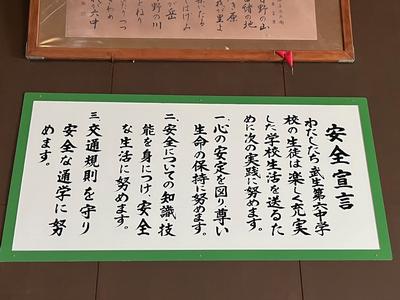 安全宣言
わたしたち武生第六中学
校の生徒は楽しく充実
した学校生活を送るた
めに次の実践に努めます。
一、心の安定を図り、尊い
生命の保持に努めます。
二、安全についての知識・技
能を身につけ、安全
な生活に努めます。
三、交通規則を守り
安全な通学に努
めます。